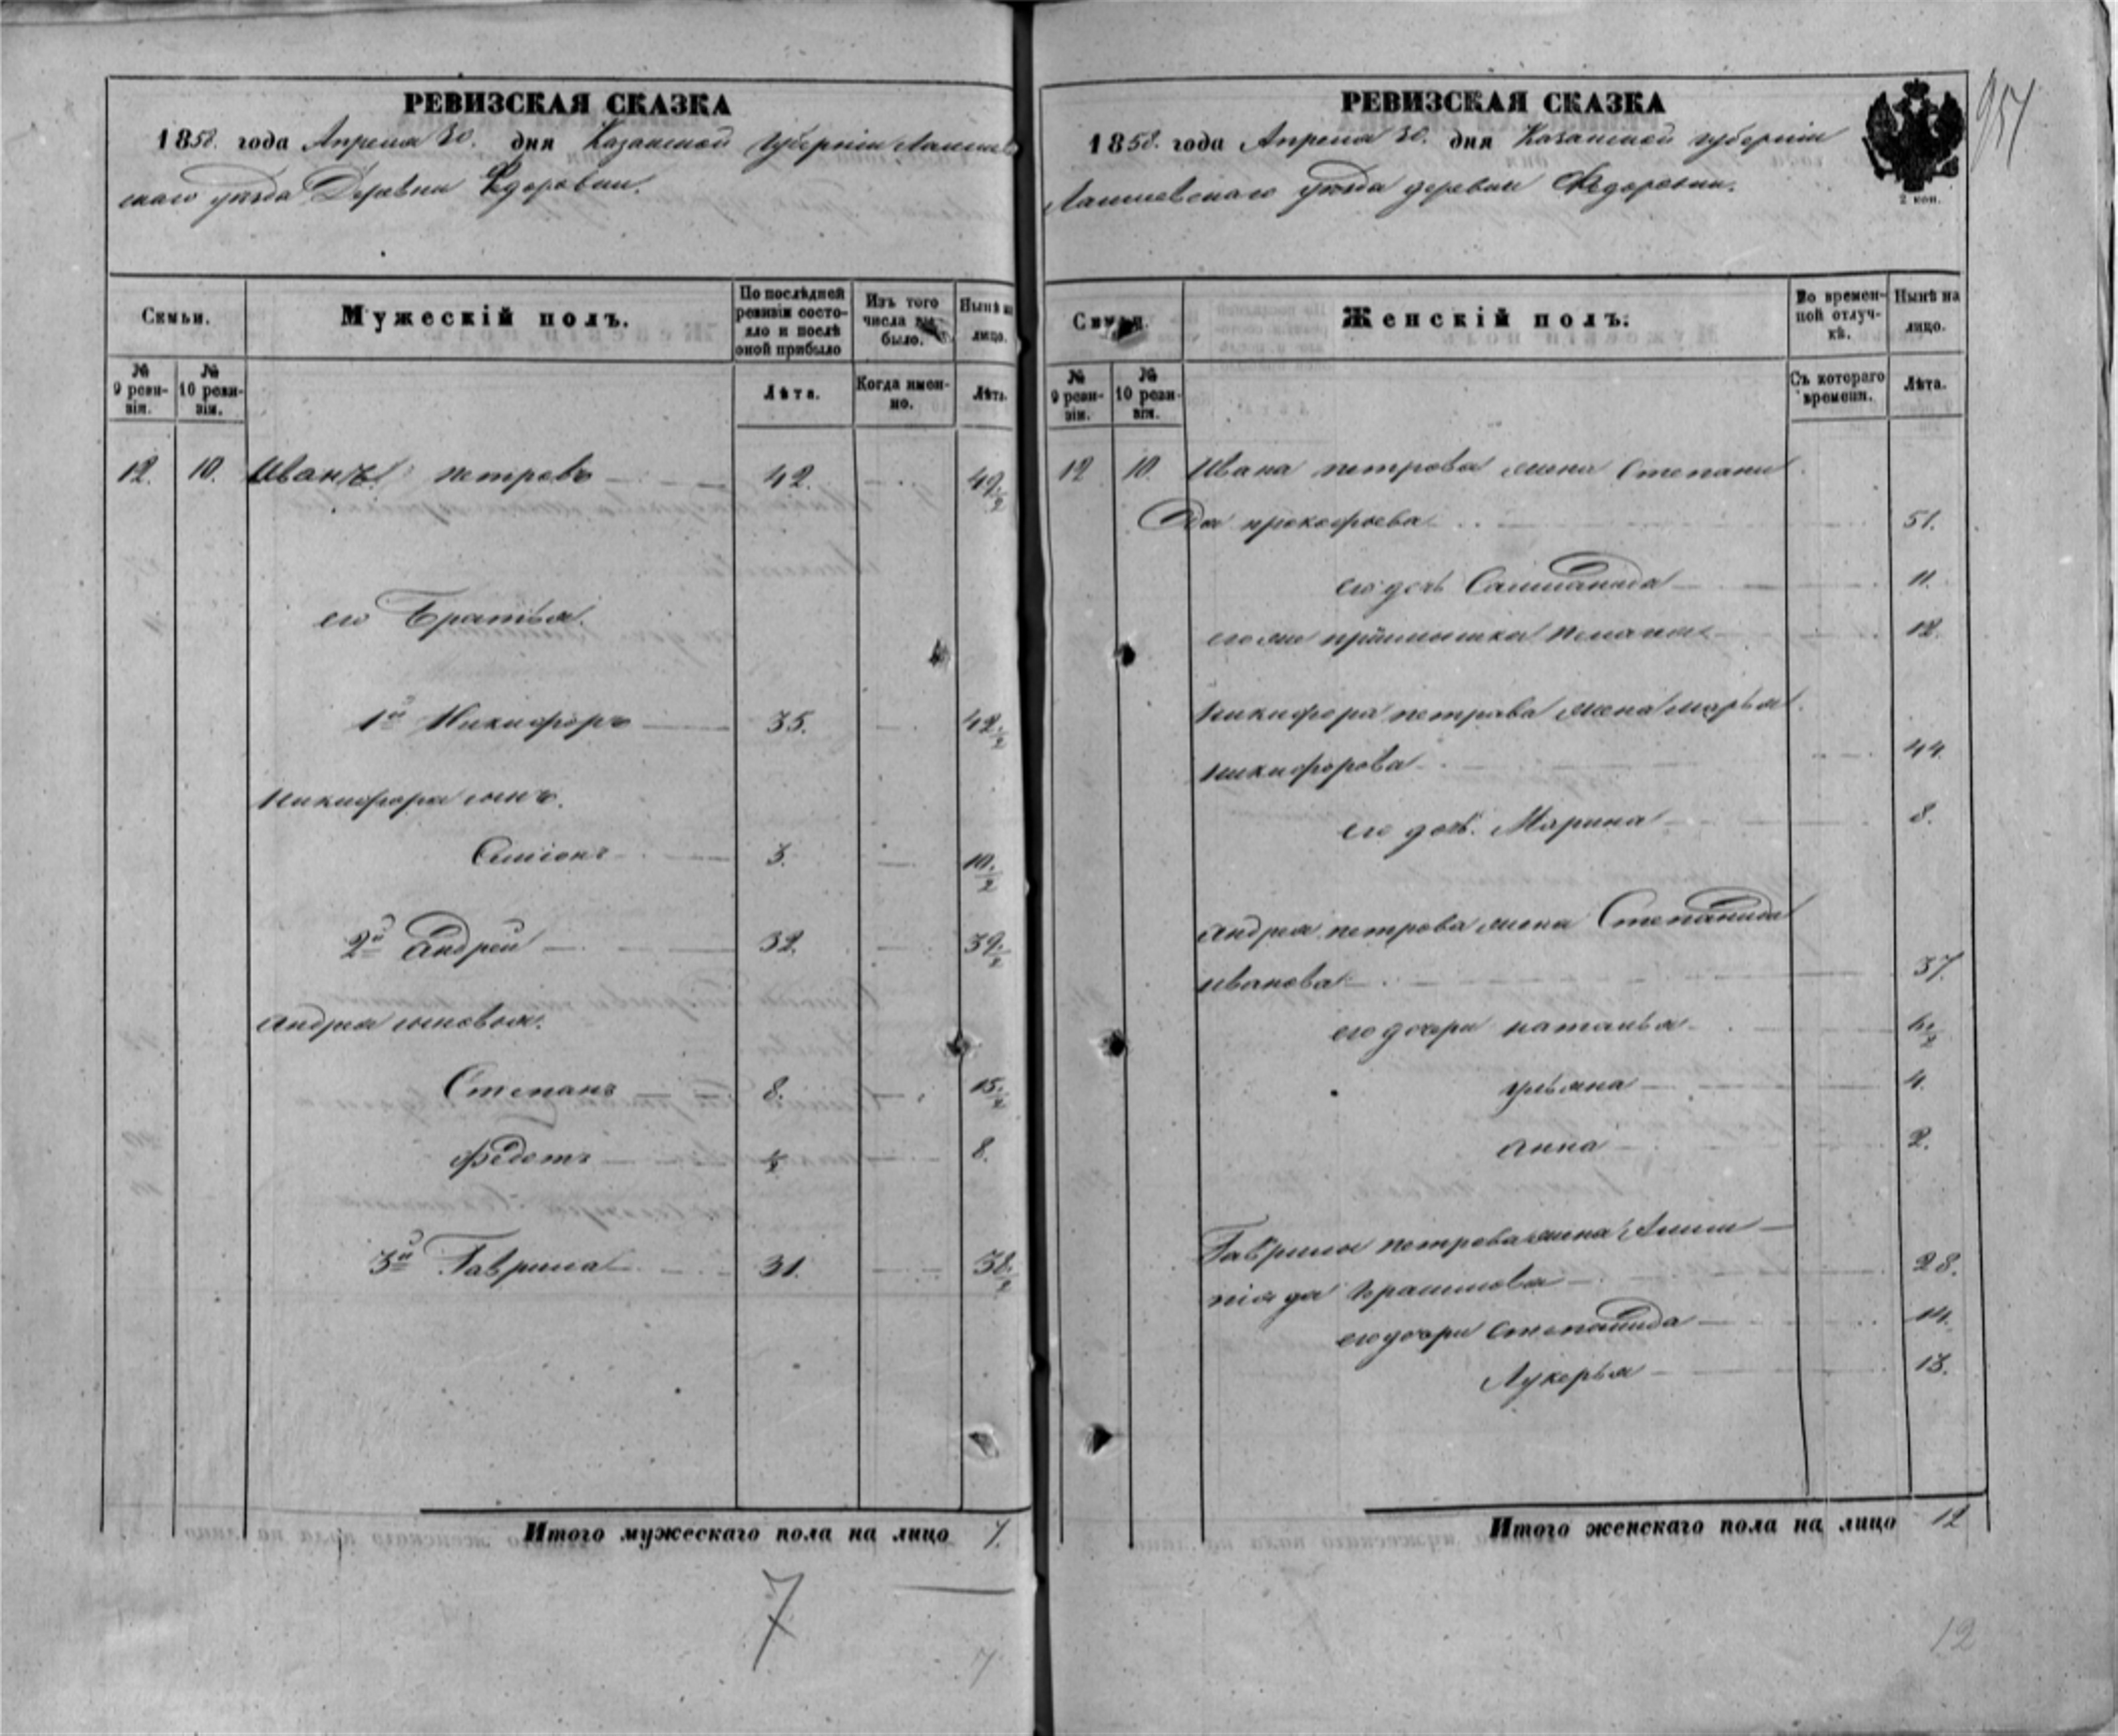 РЕВИЗСКАЯ СКАЗКА
1858. года Апреля 30. дня Казанской Губерніи Лаишев
скаго уѣзда Деревни Ѳедоровки.
Семьи.
Мужескій полъ.
По послѣдней ревизіи состояло и послѣ оной прибыло
Изъ того числа выбыло.
Нынѣ на лицо.
№ 9 ревизіи.
№ 10 ревизіи.
Лѣта.
Когда именно.
Лѣта.
12. 10. Иванъ петровъ 42. 49 1/2
его Братья.
1й Никифоръ 35. 42 1/2
Никифора сынъ.
Симіонъ 3. 10 1/2
2й Андрей 32. 39 1/2
Андрея сыновья.
Степанъ 8. 15 1/2
Федотъ 1/2 8.
3й Гаврила 31. 38 1/2
Итого мужескаго пола на лицо 7.
7
7
РЕВИЗСКАЯ СКАЗКА
1858. года Апреля 30. дня Казанской губерніи
Лаишевскаго уѣзда деревни Ѳедоровки.
2 коп.
951
Семьи.
Женскій полъ.
Во временной отлучкѣ.
Нынѣ на лицо.
№ 9 ревизіи.
№ 10 ревизіи.
Съ котораго времени.
Лѣта.
12 10. Ивана петрова жена Степани
да прокофьева 51.
его дочь 11.
его же 12.
Никифора петрова жена марья
никифорова 44.
его дочь. Марина 8.
Андрея петрова жена Степанида
иванова 37.
его дочери наталья
ульяна 4.
анна 2.
Гаврилы петрова жена
28.
его дочери степанида 14.
Лукерья 13.
Итого женскаго пола на лицо 12
12